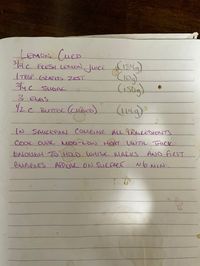 LEMON CURD
3/4 C FRESH LEMON JUICE (184g)
1 TBSP GRATED ZEST (10g)
3/4 C SUGAR (150g)
3 EGGS
1/2 C BUTTER (CUBED) (114g)
IN SAUCEPAN COMBINE ALL INGREDIENTS
COOK OVER MED-LOW HEAT UNTIL THICK
ENOUGH TO HOLD WHISK MARKS AND FIRST
BUBBLES APPEAR ON SURFACE ~6 MIN.